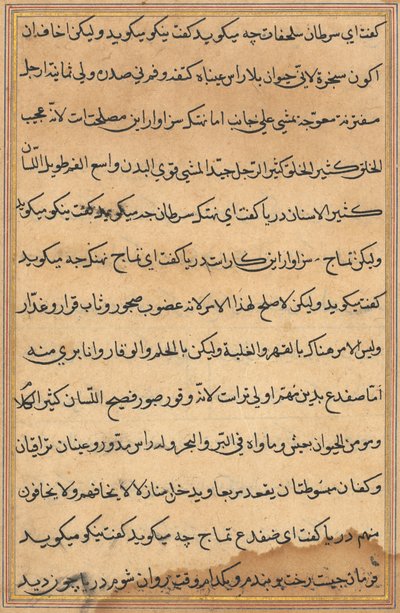 گفت ای سرطان سلحفات چه میگوید گفت نیکو میگوید ولیکن اخاف ان
اکون سخرة لانی حیوان بلا راس عیناه کتفه و فمی صدری ولی ثمانیة ارجل
مقوسة معوجة یمشی علی جانب اما نهنک سزاوار این مصلحتست لانه عجیب
الخلق کثیر الخلق کثیر الرجل جید المشی قوی البدن واسع الفم طویل اللسان
کثیر الاسنان دریا گفت ای نهنک سرطان چه میگوید گفت نیکو میگوید
ولیکن تمساح سزاوار این کار است دریا گفت ای تمساح نهنک چه میگوید
گفت میگوید ولیکن لا صلح لهذا الامر لانه غضوب ضجور وثاب فرار و غدار
ولیس الامر هناک بالقهر والغلبة ولیکن بالحلم والوقار وانا بری منه
اما ضفدع بدین مهتر اولی تراست لانه وقور صبور فصیح اللسان کثیر الکلام
و هو من الحیوان یعیش و ماواه فی البر والبحر وله راس مدور و عینان براقان
و کفان مبسوطتان یقعد مربعا و یدخل منازل لا یخافهم ولا یخافون
منهم دریا گفت ای ضفدع تمساح چه میگوید گفت نیکو میگوید
فرمان چیست برخت بوبندم و بکدام وقت روان شوم دریا چون دید